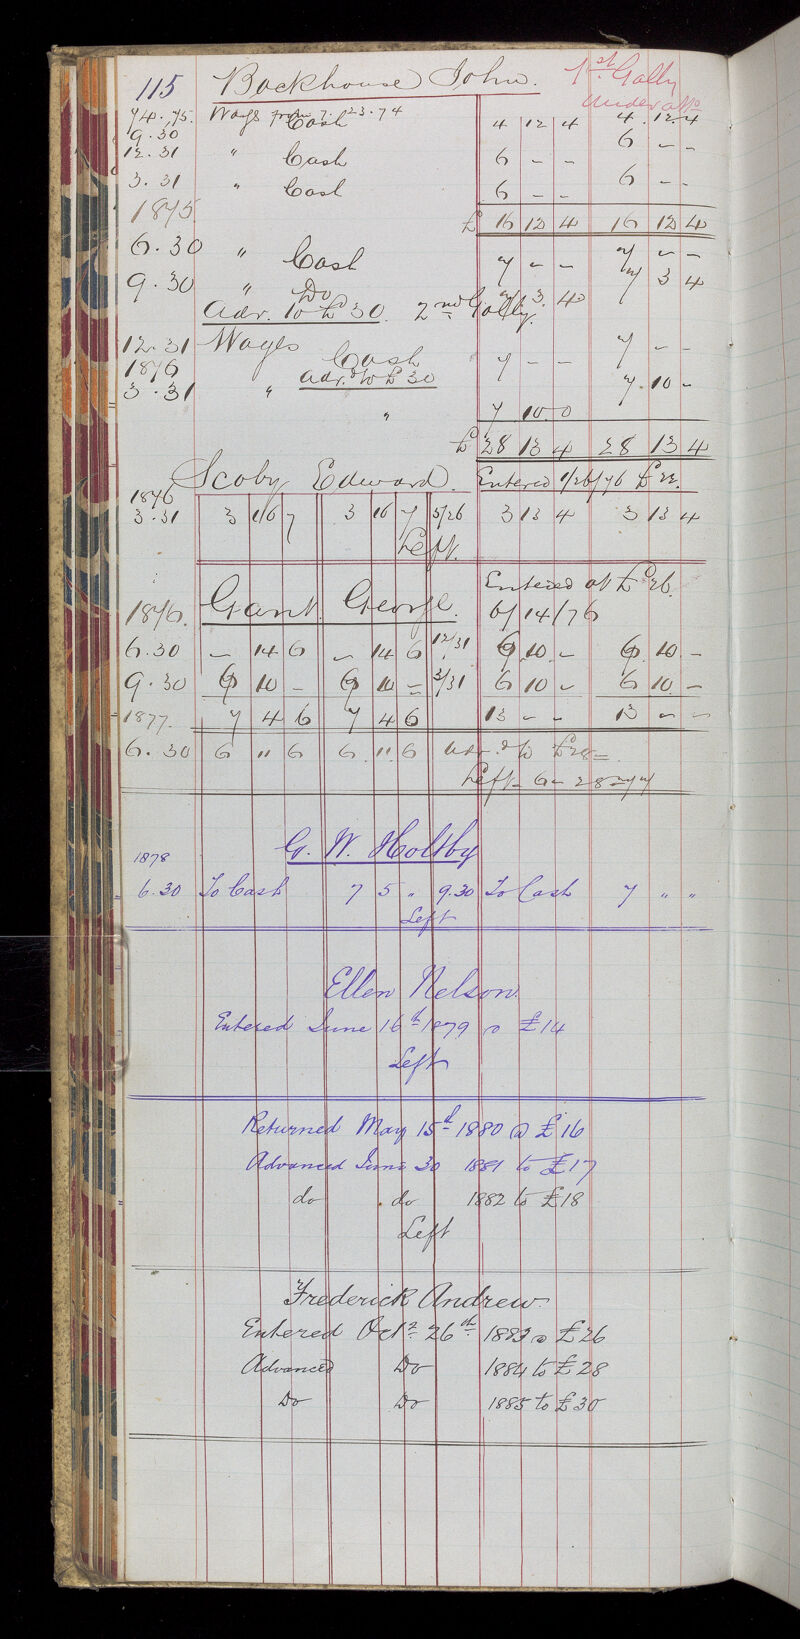 115 Backhouse John. 1st Gally
Under att
74.75. Wages from 7.23.74
9.30 Cash 4 12 4 4 12 4
12.31 " Cash 6 – – 6 – –
3.31 " Cash 6 – – 6 – –
1875 £ 16 12 4 16 12 4
6.30 " Cash 7 – – 7 – –
9.30 " Do 7 3 4 7 3 4
Adv. to £30. 2nd Gally.
12.31 Wages Cash 7 – – 7 – –
1876 Adv.d to £30
3.31 " " 7 10 0 7 10 –
£ 28 13 4 28 13 4
Scoby Edward. Entered 1/26/76 £22.
1876
3.31 3 16 7 3 16 7 5/26 3 13 4 3 13 4
Left.
Gant George. Entered at £26.
1876. 6/14/76
6.30 – 14 6 – 14 6 12/31 6 10 – 6 10 –
9.30 6 10 – 6 10 – 3/31 6 10 – 6 10 –
1877. 7 4 6 7 4 6 13 – – 13 – –
6.30 6 " 6 6 " 6 Adv.d to £28–
Left 6– 28–77
G. W. Holtby
1878
6.30 To Cash 7 5 " 9.30 To Cash 7 " "
Left
Ellen Nelson.
Entered June 16th 1879 @ £14
Left
Returned May 15d 1880 @ £16
Advanced June 30 1881 to £17
do do 1882 to £18
Left
Frederick Andrew.
Entered Octr 26th 1883 @ £26
Advanced Do 1884 to £28
Do Do 1885 to £30